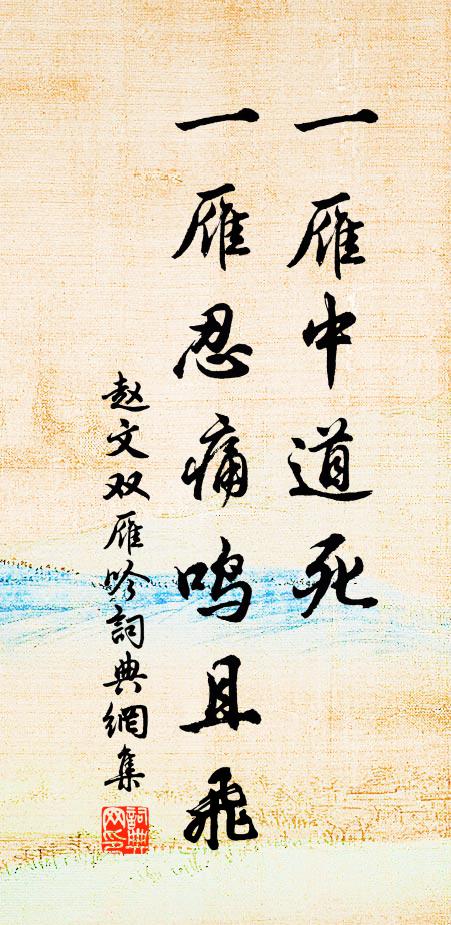 一雁中道死
一雁忍痛鸣且飞
赵文双雁吟詞典網集
詞典
网印